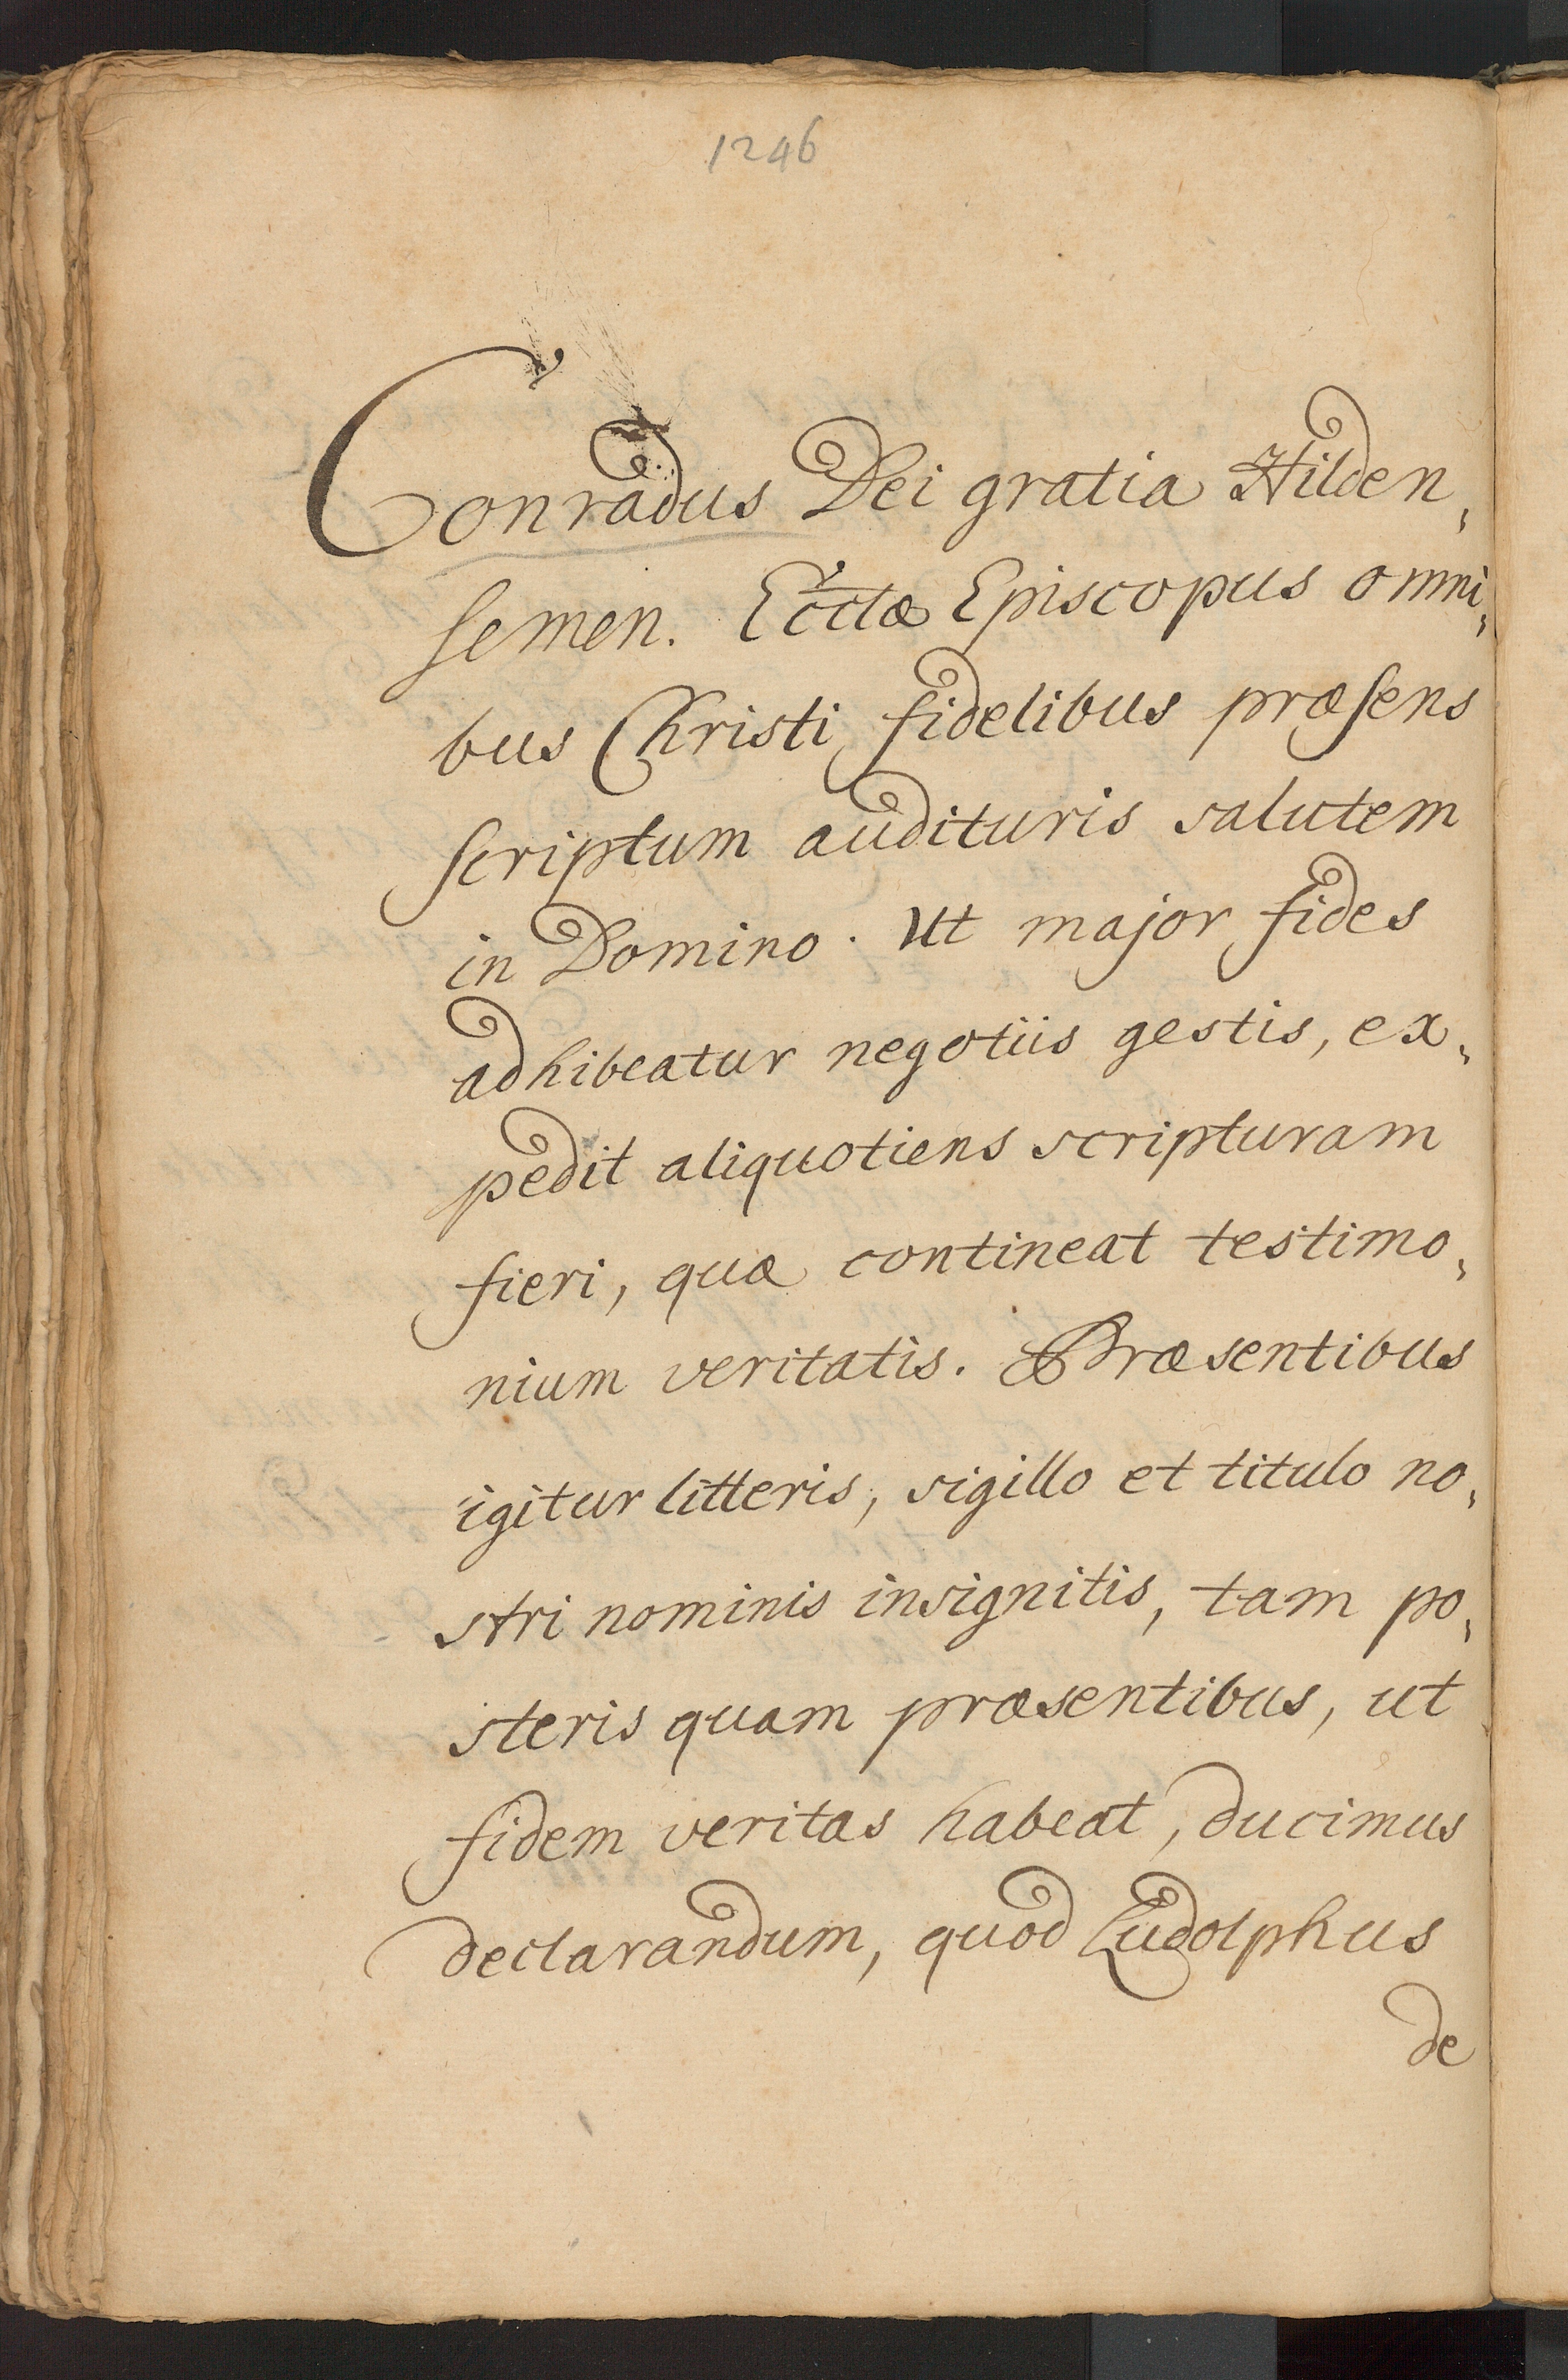 1246
Conradus Dei gratia Hilden,
semen. Ecclæ Episcopus omni,
bus Christi fidelibus præsens
scriptum audituris salutem
in Domino. Ut major fides
adhibeatur negotiis gestis, ex,
pedit aliquotiens scripturam
fieri, quæ contineat testimo,
nium veritatis. Præsentibus
igitur litteris, sigillo et titulo no,
stri nominis insignitis, tam po,
steris quam præsentibus, ut
fidem veritas habeat, ducimus
declarandum, quod Ludolphus
de